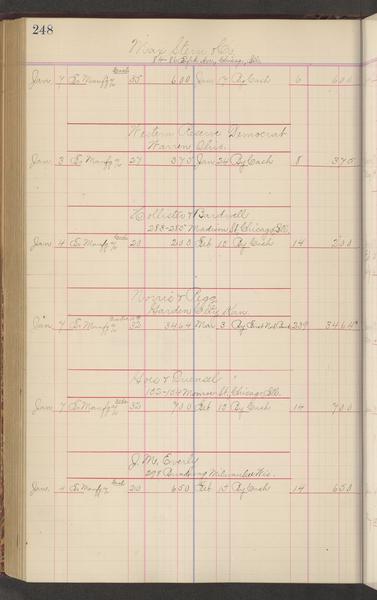 248
Max Stern & Co
84-86 Fifth Ave, Chicago, Ills.
Jan 7 To Manfg a/c 35 6 00 Jan 17 By Cash 6 6 00
Western Reserve Democrat
Warren Ohio.
Jan 3 To Manfg a/c 27 3 75 Jan 24 By Cash 8 3 75
Hollister & Bardwell
283-285 Madison St Chicago Ill.
Jan 4 To Manfg a/c 20 2 00 Feb 10 By Cash 14 2 00
Norris & Pegg
Garden City Kan.
Jan 7 To Manfg a/c 32 34 64 Mar 3 By First Nat Bank 239 34 64
& Quensel
102-104 Monroe St, Chicago Ills.
Jan. 7 To Manfg a/c 32 7 00 Feb 10 By Cash 14 7 00
J. M. Everly
298 Broadway Milwaukee Wis.
Jan. 4 To Manfg a/c 20 6 50 Feb 10 By Cash 14 6 50